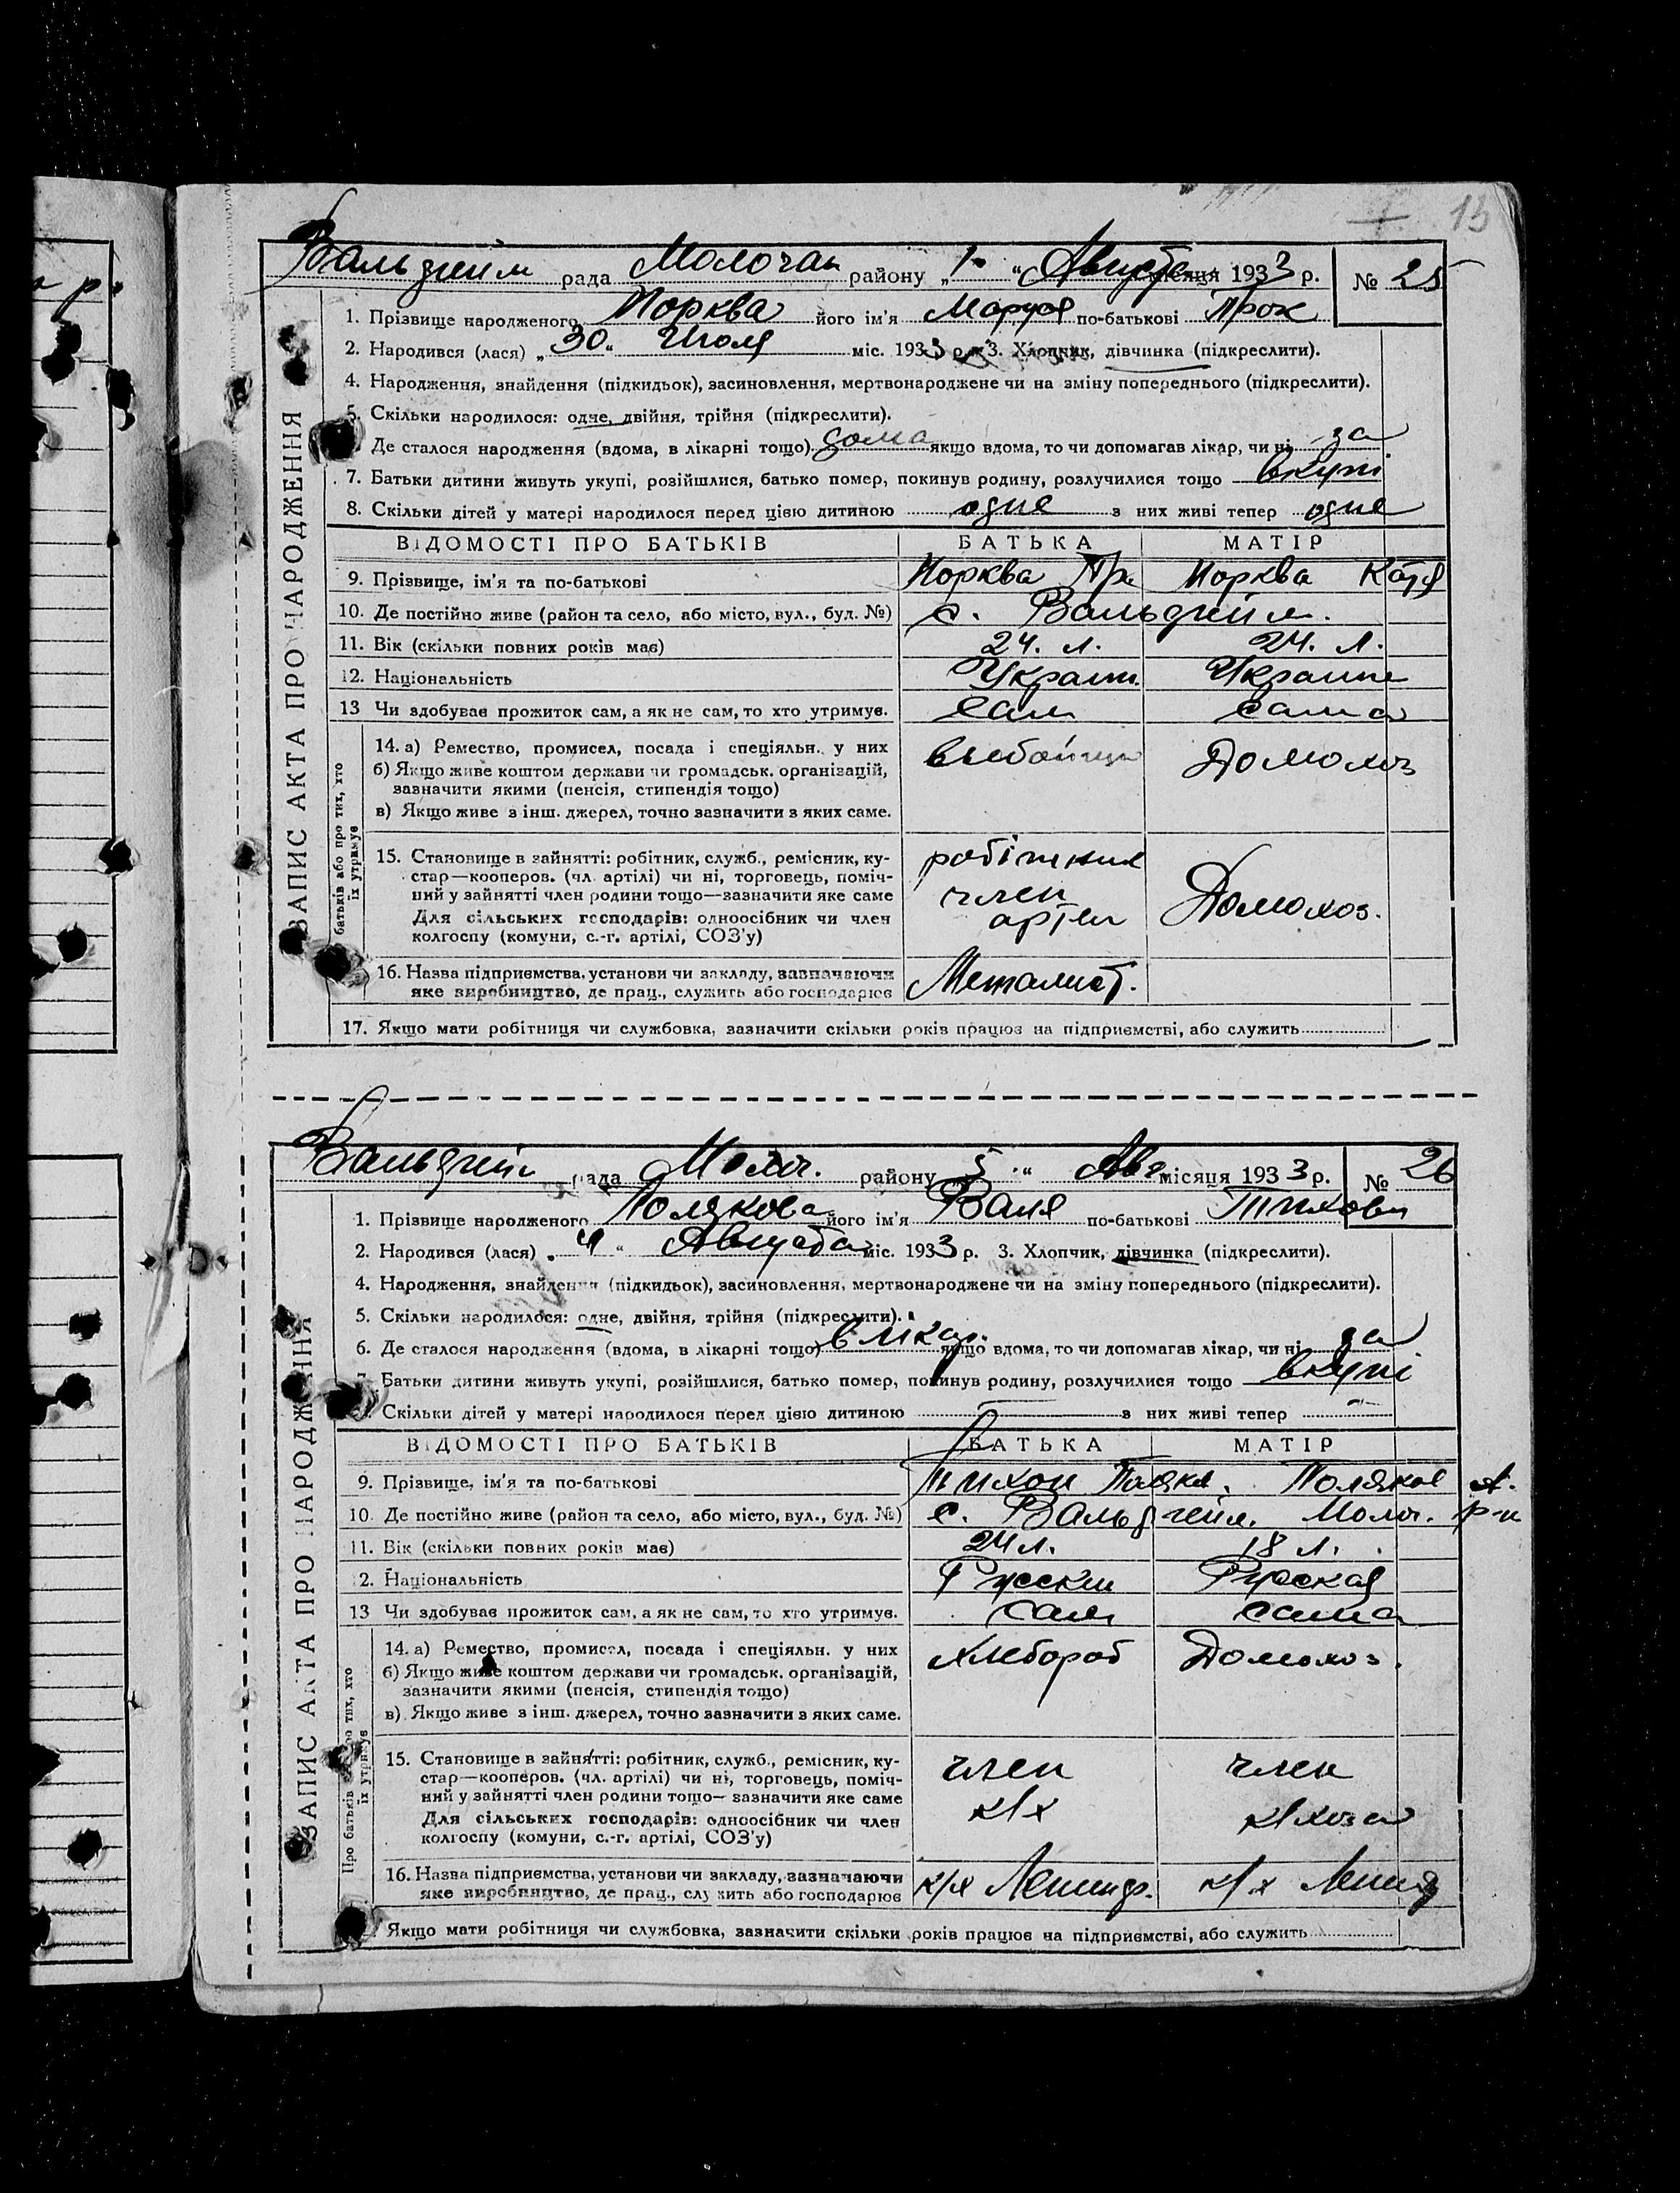 13
Вальдгейм рада Молочан району „1" Августа місяця 1933 р. № 25
ЗАПИС АКТА ПРО НАРОДЖЕННЯ
1. Прізвище народженого Морква його ім'я Маруся по-батькові Прок
2. Народився (лася) „30" Июля міс. 1933 р. 3. Хлопчик, дівчинка (підкреслити).
4. Народження, знайдення (підкидьок), засиновлення, мертвонароджене чи на зміну попереднього (підкреслити).
5. Скільки народилося: одне, двійня, трійня (підкреслити).
Де сталося народження (вдома, в лікарні тощо) дома якщо вдома, то чи допомагав лікар, чи ні
7. Батьки дитини живуть укупі, розійшлися, батько помер, покинув родину, розлучилися тощо вкупі
8. Скільки дітей у матері народилося перед цією дитиною одне з них живі тепер одне
ВІДОМОСТІ ПРО БАТЬКІВ БАТЬКА МАТІР
9. Прізвище, ім'я та по-батькові Морква Пр. Морква Катя
10. Де постійно живе (район та село, або місто, вул., буд. №) с. Вальдгейм.
11. Вік (скільки повних років має) 24. л. 24. л.
12. Національність Украин. Украинк
13 Чи здобуває прожиток сам, а як не сам, то хто утримує. Сам сама
батьків або про тих, хто їх утримує
14. а) Ремество, промисел, посада і спеціяльн. у них Домохоз
б) Якщо живе коштом держави чи громадськ. організацій,
зазначити якими (пенсія, стипендія тощо)
в) Якщо живе з інш. джерел, точно зазначити з яких саме.
15. Становище в зайнятті: робітник, служб., ремісник, ку- робітник
стар—кооперов. (чл. артілі) чи ні, торговець, поміч- член
ний у зайнятті член родини тощо—зазначити яке саме Домохоз.
Для сільських господарів: одноосібник чи член артел
колгоспу (комуни, с.-г. артілі, СОЗ'у)
16. Назва підприємства, установи чи закладу, зазначаючи Металист.
яке виробництво, де прац., служить або господарює
17. Якщо мати робітниця чи службовка, зазначити скільки років працює на підприємстві, або служить
Вальдгейм рада Молоч. району „5" Авг. місяця 1933 р. № 26
ЗАПИС АКТА ПРО НАРОДЖЕННЯ
1. Прізвище народженого Полякова його ім'я Валя по-батькові Тихови
2. Народився (лася) „4" Августа міс. 1933 р. 3. Хлопчик, дівчинка (підкреслити).
4. Народження, знайдення (підкидьок), засиновлення, мертвонароджене чи на зміну попереднього (підкреслити).
5. Скільки народилося: одне, двійня, трійня (підкреслити).
6. Де сталося народження (вдома, в лікарні тощо) в лікар. якщо вдома, то чи допомагав лікар, чи ні
7. Батьки дитини живуть укупі, розійшлися, батько помер, покинув родину, розлучилися тощо вкупі
Скільки дітей у матері народилося перед цією дитиною — з них живі тепер —
ВІДОМОСТІ ПРО БАТЬКІВ БАТЬКА МАТІР
9. Прізвище, ім'я та по-батькові Тихон Поляков. Поляков А.
10. Де постійно живе (район та село, або місто, вул., буд. №) с. Вальдгейм. Молоч. р-н
11. Вік (скільки повних років має) 24 л. 18 л.
12. Національність Русский Русская
13 Чи здобуває прожиток сам, а як не сам, то хто утримує. сам сама
Про батьків або про тих, хто їх утримує
14. а) Ремество, промисел, посада і спеціяльн. у них хлебороб Домохоз.
б) Якщо живе коштом держави чи громадськ. організацій,
зазначити якими (пенсія, стипендія тощо)
в) Якщо живе з інш. джерел, точно зазначити з яких саме.
15. Становище в зайнятті: робітник, служб., ремісник, ку- член член
стар—кооперов. (чл. артілі) чи ні, торговець, поміч-
ний у зайнятті член родини тощо— зазначити яке саме к/х к/хоза
Для сільських господарів: одноосібник чи член
колгоспу (комуни, с.-г. артілі, СОЗ'у)
16. Назва підприємства, установи чи закладу, зазначаючи к/х Ленинд. к/х Ленинд
яке виробництво, де прац., служить або господарює
Якщо мати робітниця чи службовка, зазначити скільки років працює на підприємстві, або служить